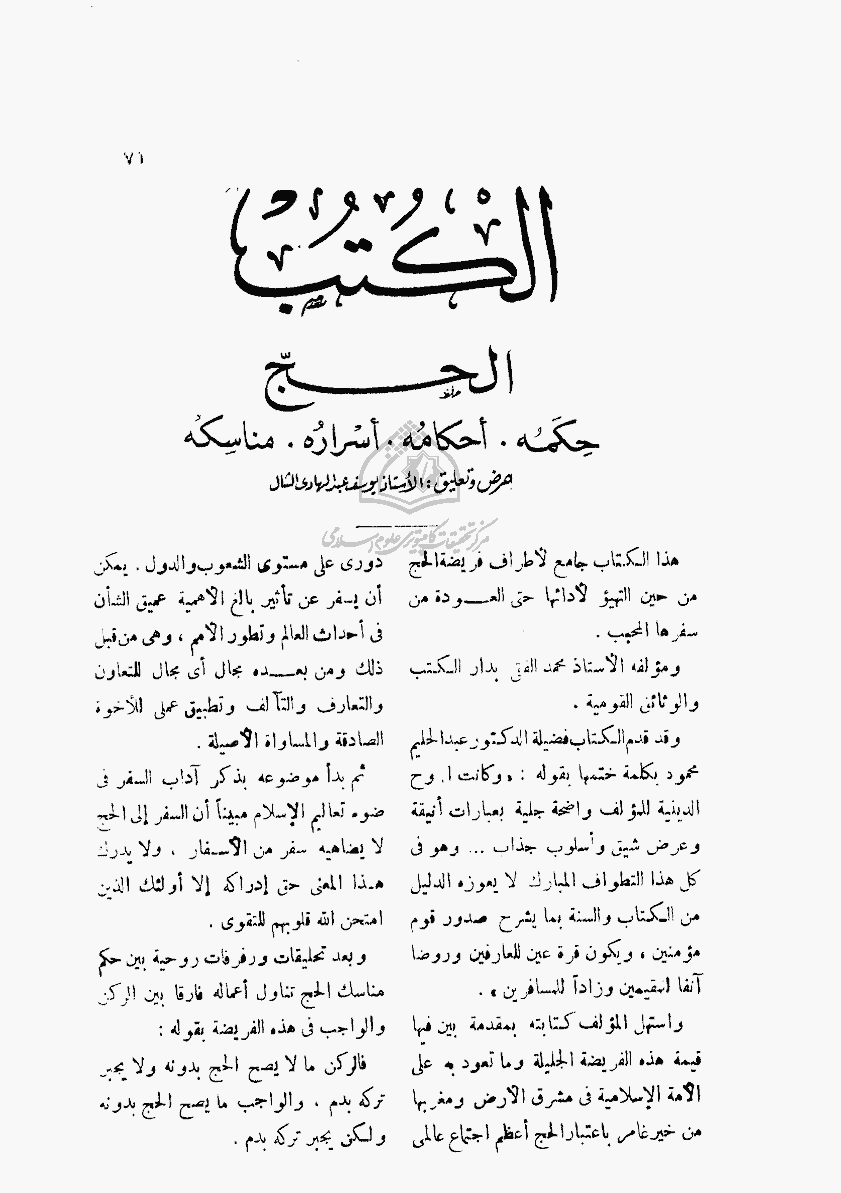 ٧١
الكُتُبُ
الحجّ
حِكَمُه . أحكامُه . أسْرارُه . مناسِكه
عرض وتعليق : الأستاذ يوسف عبد الهادى الشال
مركز تحقيقات كامپيوترى علوم اسلامى
هذا الكتاب جامع لأطراف فريضة الحج
من حين التهيؤ لأدائها حتى العودة من
سفرها المحبب .
ومؤلفه الأستاذ محمد الفقى بدار الكتب
والوثائق القومية .
وقد قدم الكتاب فضيلة الدكتور عبد الحليم
محمود بكلمة ختمها بقوله : « وكانت الروح
الدينية للمؤلف واضحة جلية بعبارات أنيقة
وعرض شيق وأسلوب جذاب ... وهو فى
كل هذا التطواف المبارك لا يعوزه الدليل
من الكتاب والسنة بما يشرح صدور قوم
مؤمنين ، ويكون قرة عين للعارفين وروضا
آنفا للمقيمين وزاداً للمسافرين » .
واستهل المؤلف كتابته بمقدمة بين فيها
قيمة هذه الفريضة الجليلة وما تعود به على
الأمة الإسلامية فى مشرق الأرض ومغربها
من خير غامر باعتبار الحج أعظم اجتماع عالمى
دورى على مستوى الشعوب والدول . يمكن
أن يسفر عن تأثير بالغ الأهمية عميق الشأن
فى أحداث العالم وتطور الأمم ، وهى من قبل
ذلك ومن بعده مجال أى مجال للتعاون
والتعارف والتآلف وتطبيق عملى للأخوة
الصادقة والمساواة الأصيلة .
ثم بدأ موضوعه بذكر آداب السفر فى
ضوء تعاليم الإسلام مبيناً أن السفر إلى الحج
لا يضاهيه سفر من الأسفار ، ولا يدرك
هذا المعنى حق إدراكه إلا أولئك الذين
امتحن الله قلوبهم للتقوى .
وبعد تحليقات ورفرفات روحية بين حكم
مناسك الحج تناول أعماله فارقا بين الركن
والواجب فى هذه الفريضة بقوله :
فالركن ما لا يصح الحج بدونه ولا يجبر
تركه بدم . والواجب ما يصح الحج بدونه
ولكن يجبر تركه بدم .